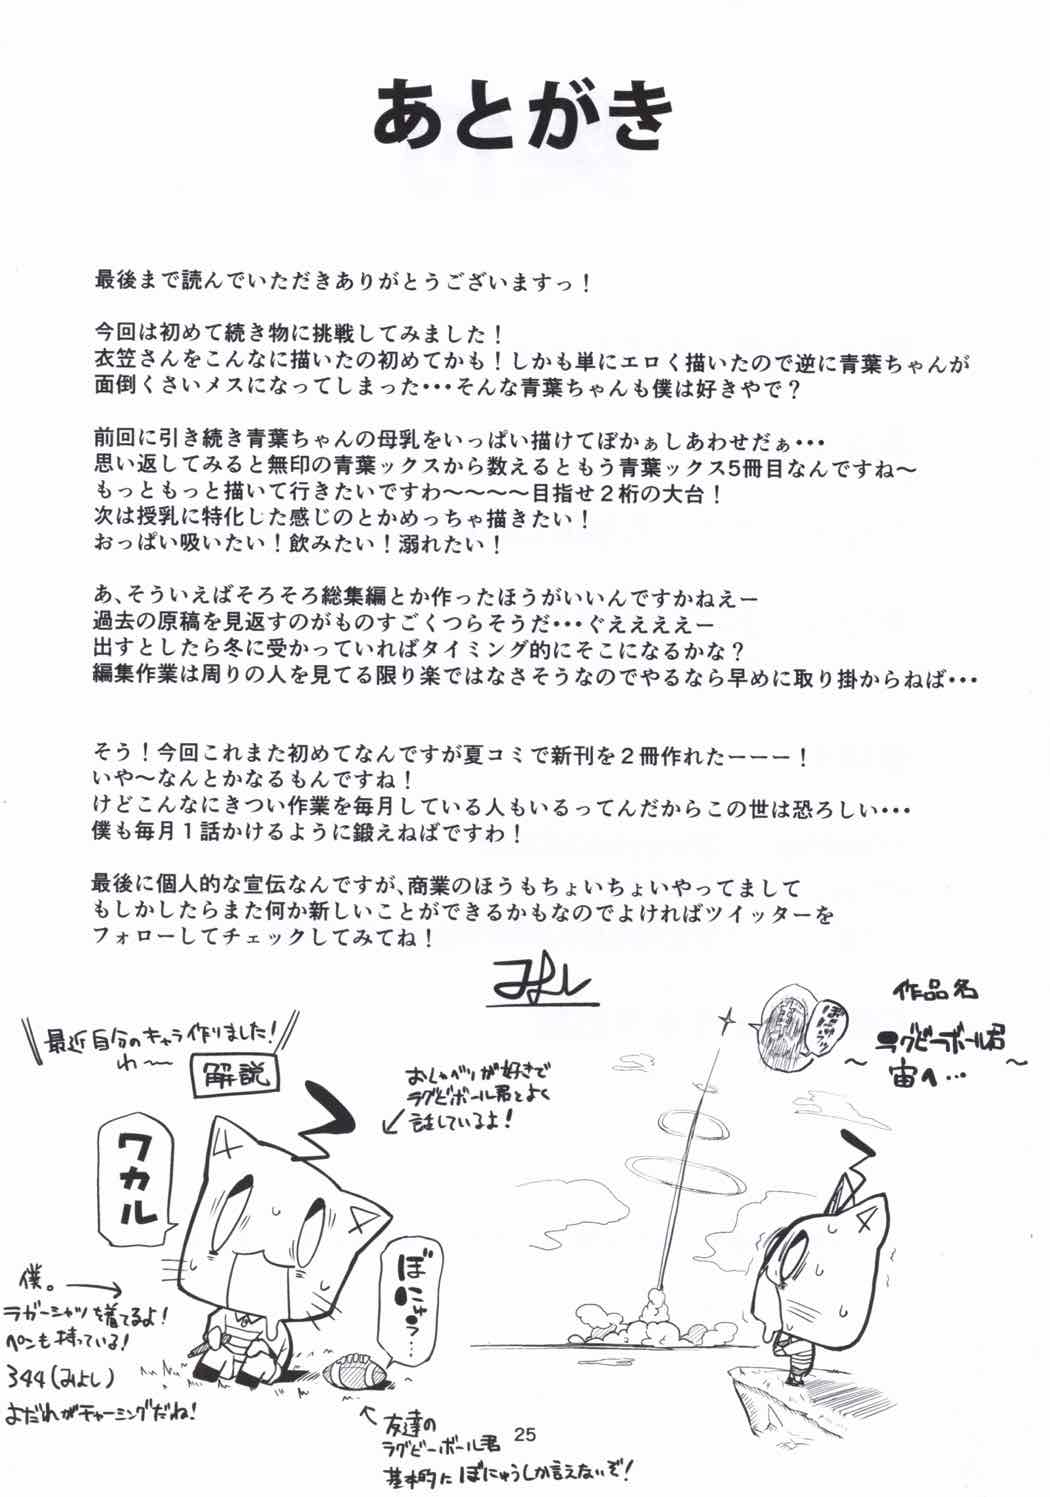 あとがき
最後まで読んでいただきありがとうございますっ！
今回は初めて続き物に挑戦してみました！
衣笠さんをこんなに描いたの初めてかも！しかも単にエロく描いたので逆に青葉ちゃんが
面倒くさいメスになってしまった・・・そんな青葉ちゃんも僕は好きやで？
前回に引き続き青葉ちゃんの母乳をいっぱい描けてぽかぁしあわせだぁ・・・
思い返してみると無印の青葉ックスから数えるともう青葉ックス5冊目なんですね～
もっともっと描いて行きたいですわ～～～～目指せ２桁の大台！
次は授乳に特化した感じのとかめっちゃ描きたい！
おっぱい吸いたい！飲みたい！溺れたい！
あ、そういえばそろそろ総集編とか作ったほうがいいんですかねえー
過去の原稿を見返すのがものすごくつらそうだ・・・ぐええええー
出すとしたら冬に受かっていればタイミング的にそこになるかな？
編集作業は周りの人を見てる限り楽ではなさそうなのでやるなら早めに取り掛からねば・・・
そう！今回これまた初めてなんですが夏コミで新刊を２冊作れたーーー！
いや～なんとかなるもんですね！
けどこんなにきつい作業を毎月している人もいるってんだからこの世は恐ろしい・・・
僕も毎月１話かけるように鍛えねばですわ！
最後に個人的な宣伝なんですが、商業のほうもちょいちょいやってまして
もしかしたらまた何か新しいことができるかもなのでよければツイッターを
フォローしてチェックしてみてね！
みよし
最近自分のキャラ作りました！
わ〜
解説
ワカル
おしゃべりが好きで
ラグビーボール君とよく
話しているよ！
ぼにゅう…
僕。
ラガーシャツを着てるよ！
ペンも持っている！
344(みよし)
よだれがチャーミングだね！
友達の
ラグビーボール君
基本的にぼにゅうしか言えないぞ！
作品名
ラグビーボール君
～宙へ…～
25